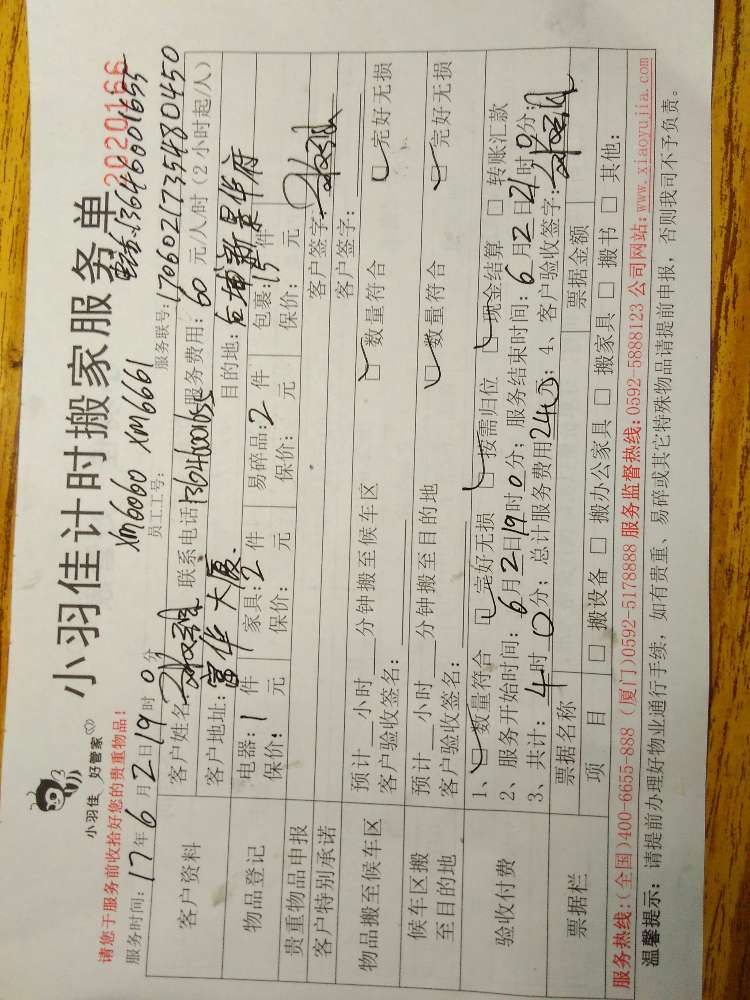 小羽佳 好管家
小羽佳计时搬家服务单
2020166
电话:13646001655
请您于服务前收拾好您的贵重物品!
XM6060 XM6661
服务时间: 17年6月2日19时0分 员工工号: 服务联号: 1706021735480450
客户资料
客户姓名 联系电话13646001655 服务费用: 60 元/人/时 (2小时起/人)
客户地址: 富华大厦. 目的地: 后埔新景华府
物品登记
电器: 1 件 家具: 2 件 易碎品: 2 件 包裹: 15 件
保价: 元 保价: 元 保价: 元 保价: 元
贵重物品申报 客户签字:
客户特别承诺 客户签字:
物品搬至候车区
预计__小时__分钟搬至候车区 □ 数量符合 □ 完好无损
客户验收签名:
候车区搬至目的地
预计__小时__分钟搬至目的地 □ 数量符合 □ 完好无损
客户验收签名:
验收付费
1、□ 数量符合 □ 完好无损 □ 按需归位 □ 现金结算 □ 转账汇款
2、服务开始时间: 6月2日19时0分; 服务结束时间: 6月2日21时0分;
3、共计: 4时0分; 总计服务费用240元; 4、客户验收签字:
票据栏
票据名称 票据金额
项 目 □ 搬设备 □ 搬办公家具 □ 搬家具 □ 搬书 □ 其他:
服务热线:(全国)400-6655-888 (厦门)0592-5178888 服务监督热线:0592-5888123 公司网站:www.xiaoyujia.com
温馨提示: 请提前办理好物业通行手续, 如有贵重、易碎或其它特殊物品请提前申报, 否则我司不予负责。